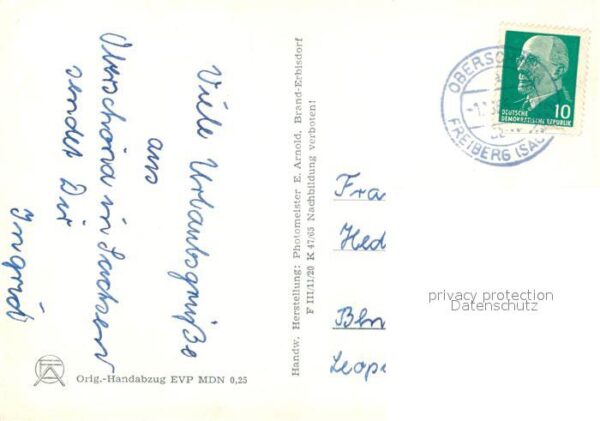 Viele Urlaubsgrüße
aus
Oberschöna in Sachsen
sendet Dir
Ingrid
Orig.-Handabzug EVP MDN 0,25
Handw. Herstellung: Photomeister E. Arnold, Brand-Erbisdorf
F III/11/20 K 47/65 Nachbildung verboten!
OBERSC
FREIBERG (SAC
DEUTSCHE
DEMOKRATISCHE REPUBLIK
10
Fra
Hed
Bln
Leop
privacy protection
Datenschutz